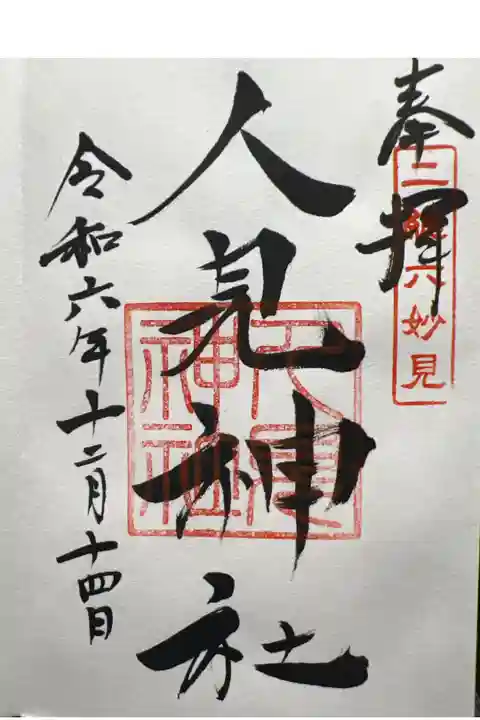 奉拝
二総六妙見
人見神社
人見神社
令和六年十二月十四日